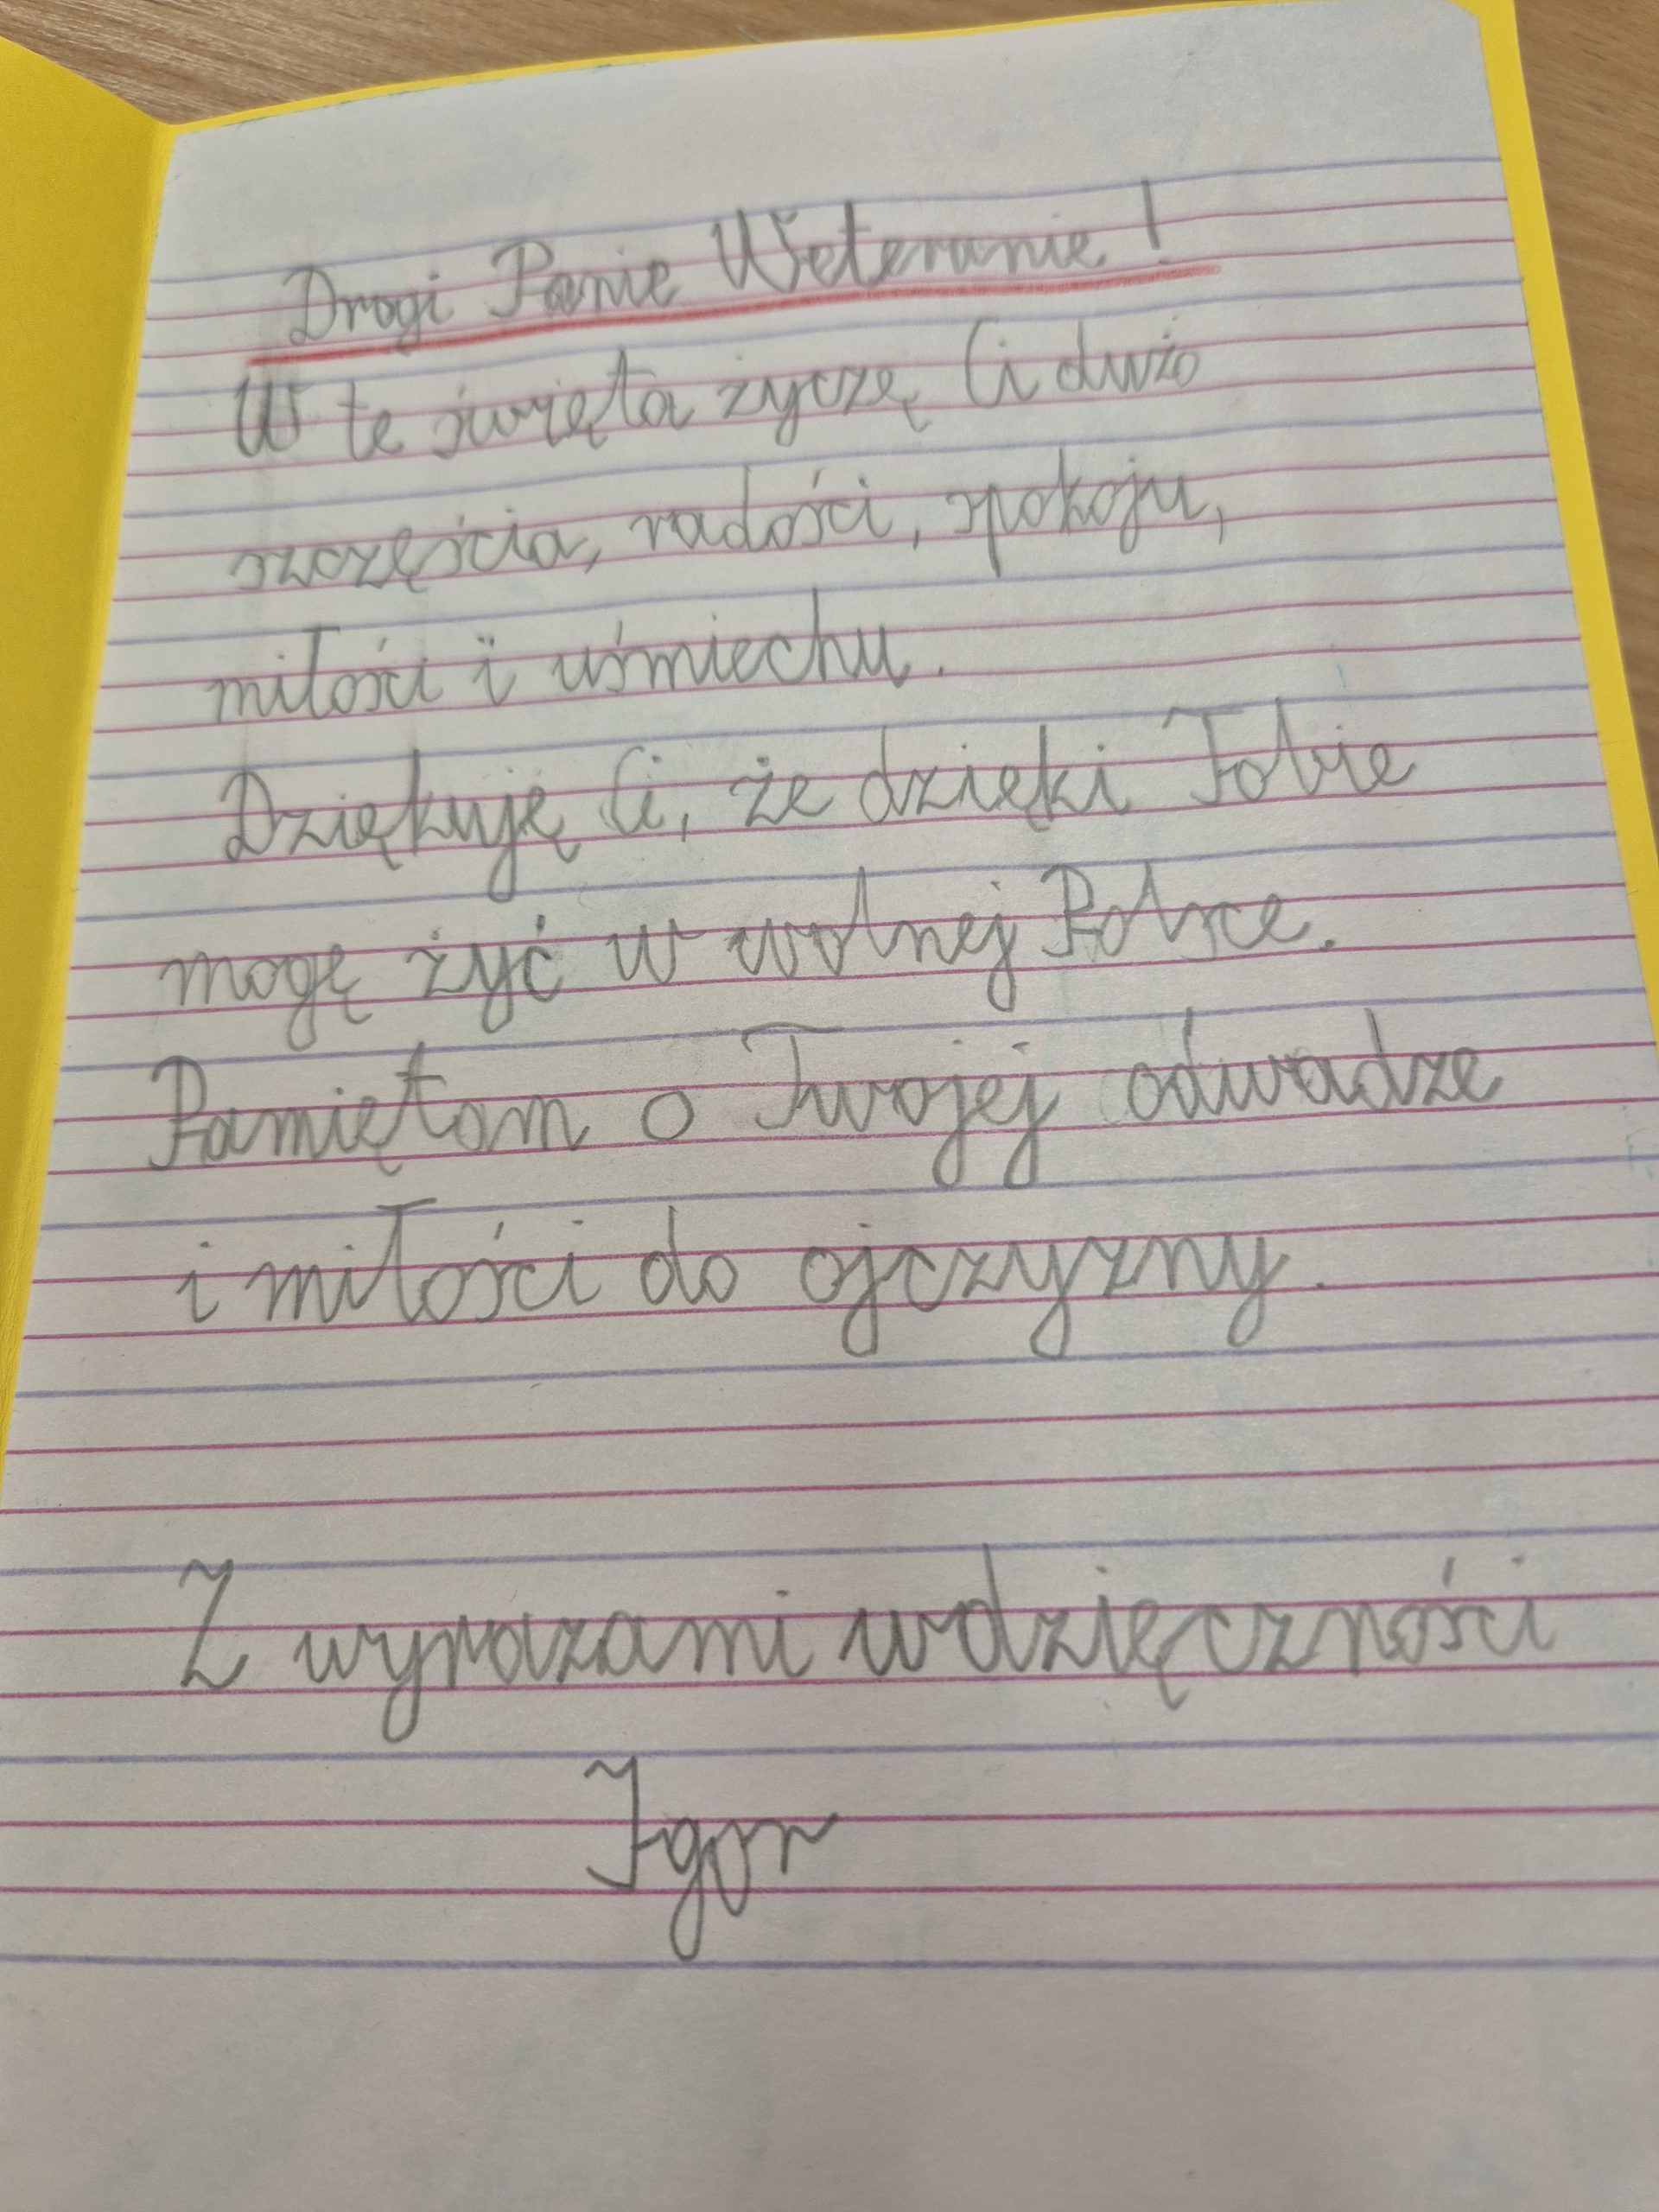 Drogi Panie Weteranie!
W te święta życzę Ci dużo
szczęścia, radości, spokoju,
miłości i uśmiechu.
Dziękuję Ci, że dzięki Tobie
mogę żyć w wolnej Polsce.
Pamiętam o Twojej odwadze
i miłości do ojczyzny.
Z wyrazami wdzięczności
Igor